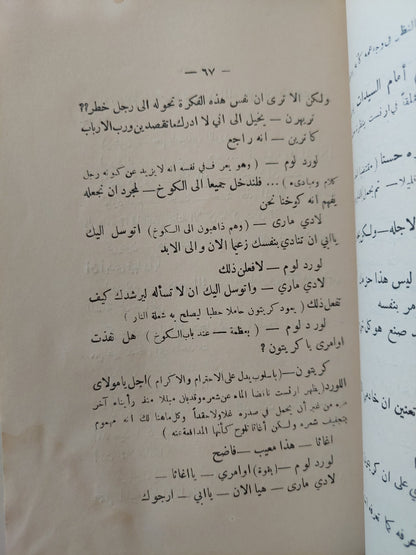 — ٦٧ —
ولكن الا ترى ان نفس هذه الفكرة تحوله الى رجل خطر؟؟
تريهرن — يخيل الى اني لا ادرك ماتقصدين ورب الارباب
كاترين — انه راجع
لورد لوم — ( وهو يعرف في نفسه انه لايزيد عن كونه رجل
كلام ومبادىء ) ... فلندخل جميعا الى الكوخ — لمجرد ان نجعله
يفهم انه كوخنا نحن
لادي ماري — ( وهم ذاهبون الى الكوخ ) اتوسل اليك
ياابي ان تنادي بنفسك زعيما الان والى الابد
لورد لوم — لافعلن ذلك
لادي ماري — واتوسل اليك ان لا تسأله ليرشدك كيف
تفعل ذلك ( يعود كريتون حاملا حطبا ليصلح به شعلة النار )
لورد لوم — ( بعظمة — عند باب الكوخ ) هل نفذت
اوامري يا كريتون ؟
كريتون — ( باسلوب يدل على الاحترام والاكرام ) اجل يامولاى
اللورد ( يظهر ارنست نافضا الماء عن شعره وقد بان مبتلا منذ رأيناه آخر
مرة من غير أن يحمل في صدره غلا ولا حقدا وكل ماهنا لك انه مهموم
بتجفيف شعره ولكن أغاثا تلوح كأنها المدافعة عنه )
اغاثا — هذا معيب — فاضح
لورد لوم — ( بقوة ) اوامري — يا اغاثا —
لادي مارى — هيا الان — ياابي — ارجوك